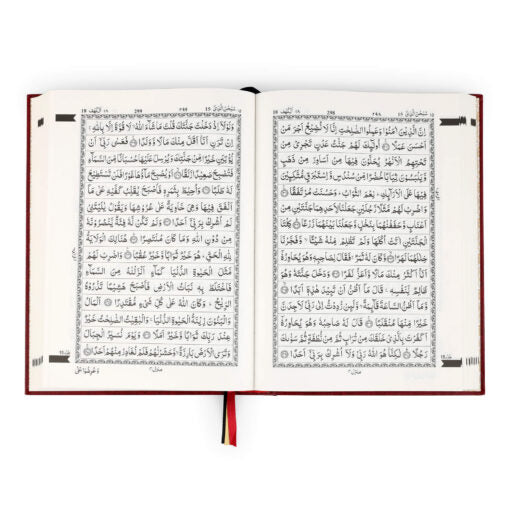 سُبْحٰنَ الَّذِیْ 15
298
۲۹۸
اَلْكَهْف 18
اِنَّ الَّذِیْنَ اٰمَنُوْا وَعَمِلُوا الصّٰلِحٰتِ اِنَّا لَا نُضِیْعُ اَجْرَ مَنْ
اَحْسَنَ عَمَلًا اُولٰٓئِكَ لَهُمْ جَنّٰتُ عَدْنٍ تَجْرِیْ مِنْ
تَحْتِهِمُ الْاَنْهٰرُ یُحَلَّوْنَ فِیْهَا مِنْ اَسَاوِرَ مِنْ ذَهَبٍ
وَّیَلْبَسُوْنَ ثِیَابًا خُضْرًا مِّنْ سُنْدُسٍ وَّاِسْتَبْرَقٍ مُّتَّكِـِٕیْنَ
فِیْهَا عَلَی الْاَرَآىِٕكِ نِعْمَ الثَّوَابُ وَحَسُنَتْ مُرْتَفَقًا
وَاضْرِبْ لَهُمْ مَّثَلًا رَّجُلَیْنِ جَعَلْنَا لِاَحَدِهِمَا جَنَّتَیْنِ مِنْ
اَعْنَابٍ وَّحَفَفْنٰهُمَا بِنَخْلٍ وَّجَعَلْنَا بَیْنَهُمَا زَرْعًا كِلْتَا
الْجَنَّتَیْنِ اٰتَتْ اُكُلَهَا وَلَمْ تَظْلِمْ مِّنْهُ شَیْـًٔا وَّفَجَّرْنَا
خِلٰلَهُمَا نَهَرًا وَّكَانَ لَهٗ ثَمَرٌ فَقَالَ لِصَاحِبِهٖ وَهُوَ یُحَاوِرُهٗۤ
اَنَا اَكْثَرُ مِنْكَ مَالًا وَّاَعَزُّ نَفَرًا وَدَخَلَ جَنَّتَهٗ وَهُوَ
ظَالِمٌ لِّنَفْسِهٖ قَالَ مَاۤ اَظُنُّ اَنْ تَبِیْدَ هٰذِهٖۤ اَبَدًا
وَّمَاۤ اَظُنُّ السَّاعَةَ قَآىِٕمَةً وَّلَىِٕنْ رُّدِدْتُّ اِلٰی رَبِّیْ لَاَجِدَنَّ
خَیْرًا مِّنْهَا مُنْقَلَبًا قَالَ لَهٗ صَاحِبُهٗ وَهُوَ یُحَاوِرُهٗۤ
اَكَفَرْتَ بِالَّذِیْ خَلَقَكَ مِنْ تُرَابٍ ثُمَّ مِنْ نُّطْفَةٍ ثُمَّ سَوّٰىكَ
رَجُلًا لٰكِنَّاۡ هُوَ اللّٰهُ رَبِّیْ وَلَاۤ اُشْرِكُ بِرَبِّیْۤ اَحَدًا
سُبْحٰنَ الَّذِیْ 15
299
۲۹۹
اَلْكَهْف 18
وَلَوْلَاۤ اِذْ دَخَلْتَ جَنَّتَكَ قُلْتَ مَا شَآءَ اللّٰهُ لَا قُوَّةَ اِلَّا بِاللّٰهِ
اِنْ تَرَنِ اَنَا اَقَلَّ مِنْكَ مَالًا وَّوَلَدًا فَعَسٰی رَبِّیْۤ اَنْ
یُّؤْتِیَنِ خَیْرًا مِّنْ جَنَّتِكَ وَیُرْسِلَ عَلَیْهَا حُسْبَانًا مِّنَ السَّمَآءِ
فَتُصْبِحَ صَعِیْدًا زَلَقًا اَوْ یُصْبِحَ مَآؤُهَا غَوْرًا فَلَنْ تَسْتَطِیْعَ
لَهٗ طَلَبًا وَاُحِیْطَ بِثَمَرِهٖ فَاَصْبَحَ یُقَلِّبُ كَفَّیْهِ عَلٰی مَاۤ
اَنْفَقَ فِیْهَا وَهِیَ خَاوِیَةٌ عَلٰی عُرُوْشِهَا وَیَقُوْلُ یٰلَیْتَنِیْ
لَمْ اُشْرِكْ بِرَبِّیْۤ اَحَدًا وَلَمْ تَكُنْ لَّهٗ فِئَةٌ یَّنْصُرُوْنَهٗ
مِنْ دُوْنِ اللّٰهِ وَمَا كَانَ مُنْتَصِرًا هُنَالِكَ الْوَلَایَةُ
لِلّٰهِ الْحَقِّ هُوَ خَیْرٌ ثَوَابًا وَّخَیْرٌ عُقْبًا وَاضْرِبْ لَهُمْ
مَّثَلَ الْحَیٰوةِ الدُّنْیَا كَمَآءٍ اَنْزَلْنٰهُ مِنَ السَّمَآءِ
فَاخْتَلَطَ بِهٖ نَبَاتُ الْاَرْضِ فَاَصْبَحَ هَشِیْمًا تَذْرُوْهُ
الرِّیٰحُ وَكَانَ اللّٰهُ عَلٰی كُلِّ شَیْءٍ مُّقْتَدِرًا اَلْمَالُ
وَالْبَنُوْنَ زِیْنَةُ الْحَیٰوةِ الدُّنْیَا وَالْبٰقِیٰتُ الصّٰلِحٰتُ خَیْرٌ
عِنْدَ رَبِّكَ ثَوَابًا وَّخَیْرٌ اَمَلًا وَیَوْمَ نُسَیِّرُ الْجِبَالَ
وَتَرَی الْاَرْضَ بَارِزَةً وَّحَشَرْنٰهُمْ فَلَمْ نُغَادِرْ مِنْهُمْ اَحَدًا
وَعُرِضُوْا عَلٰی